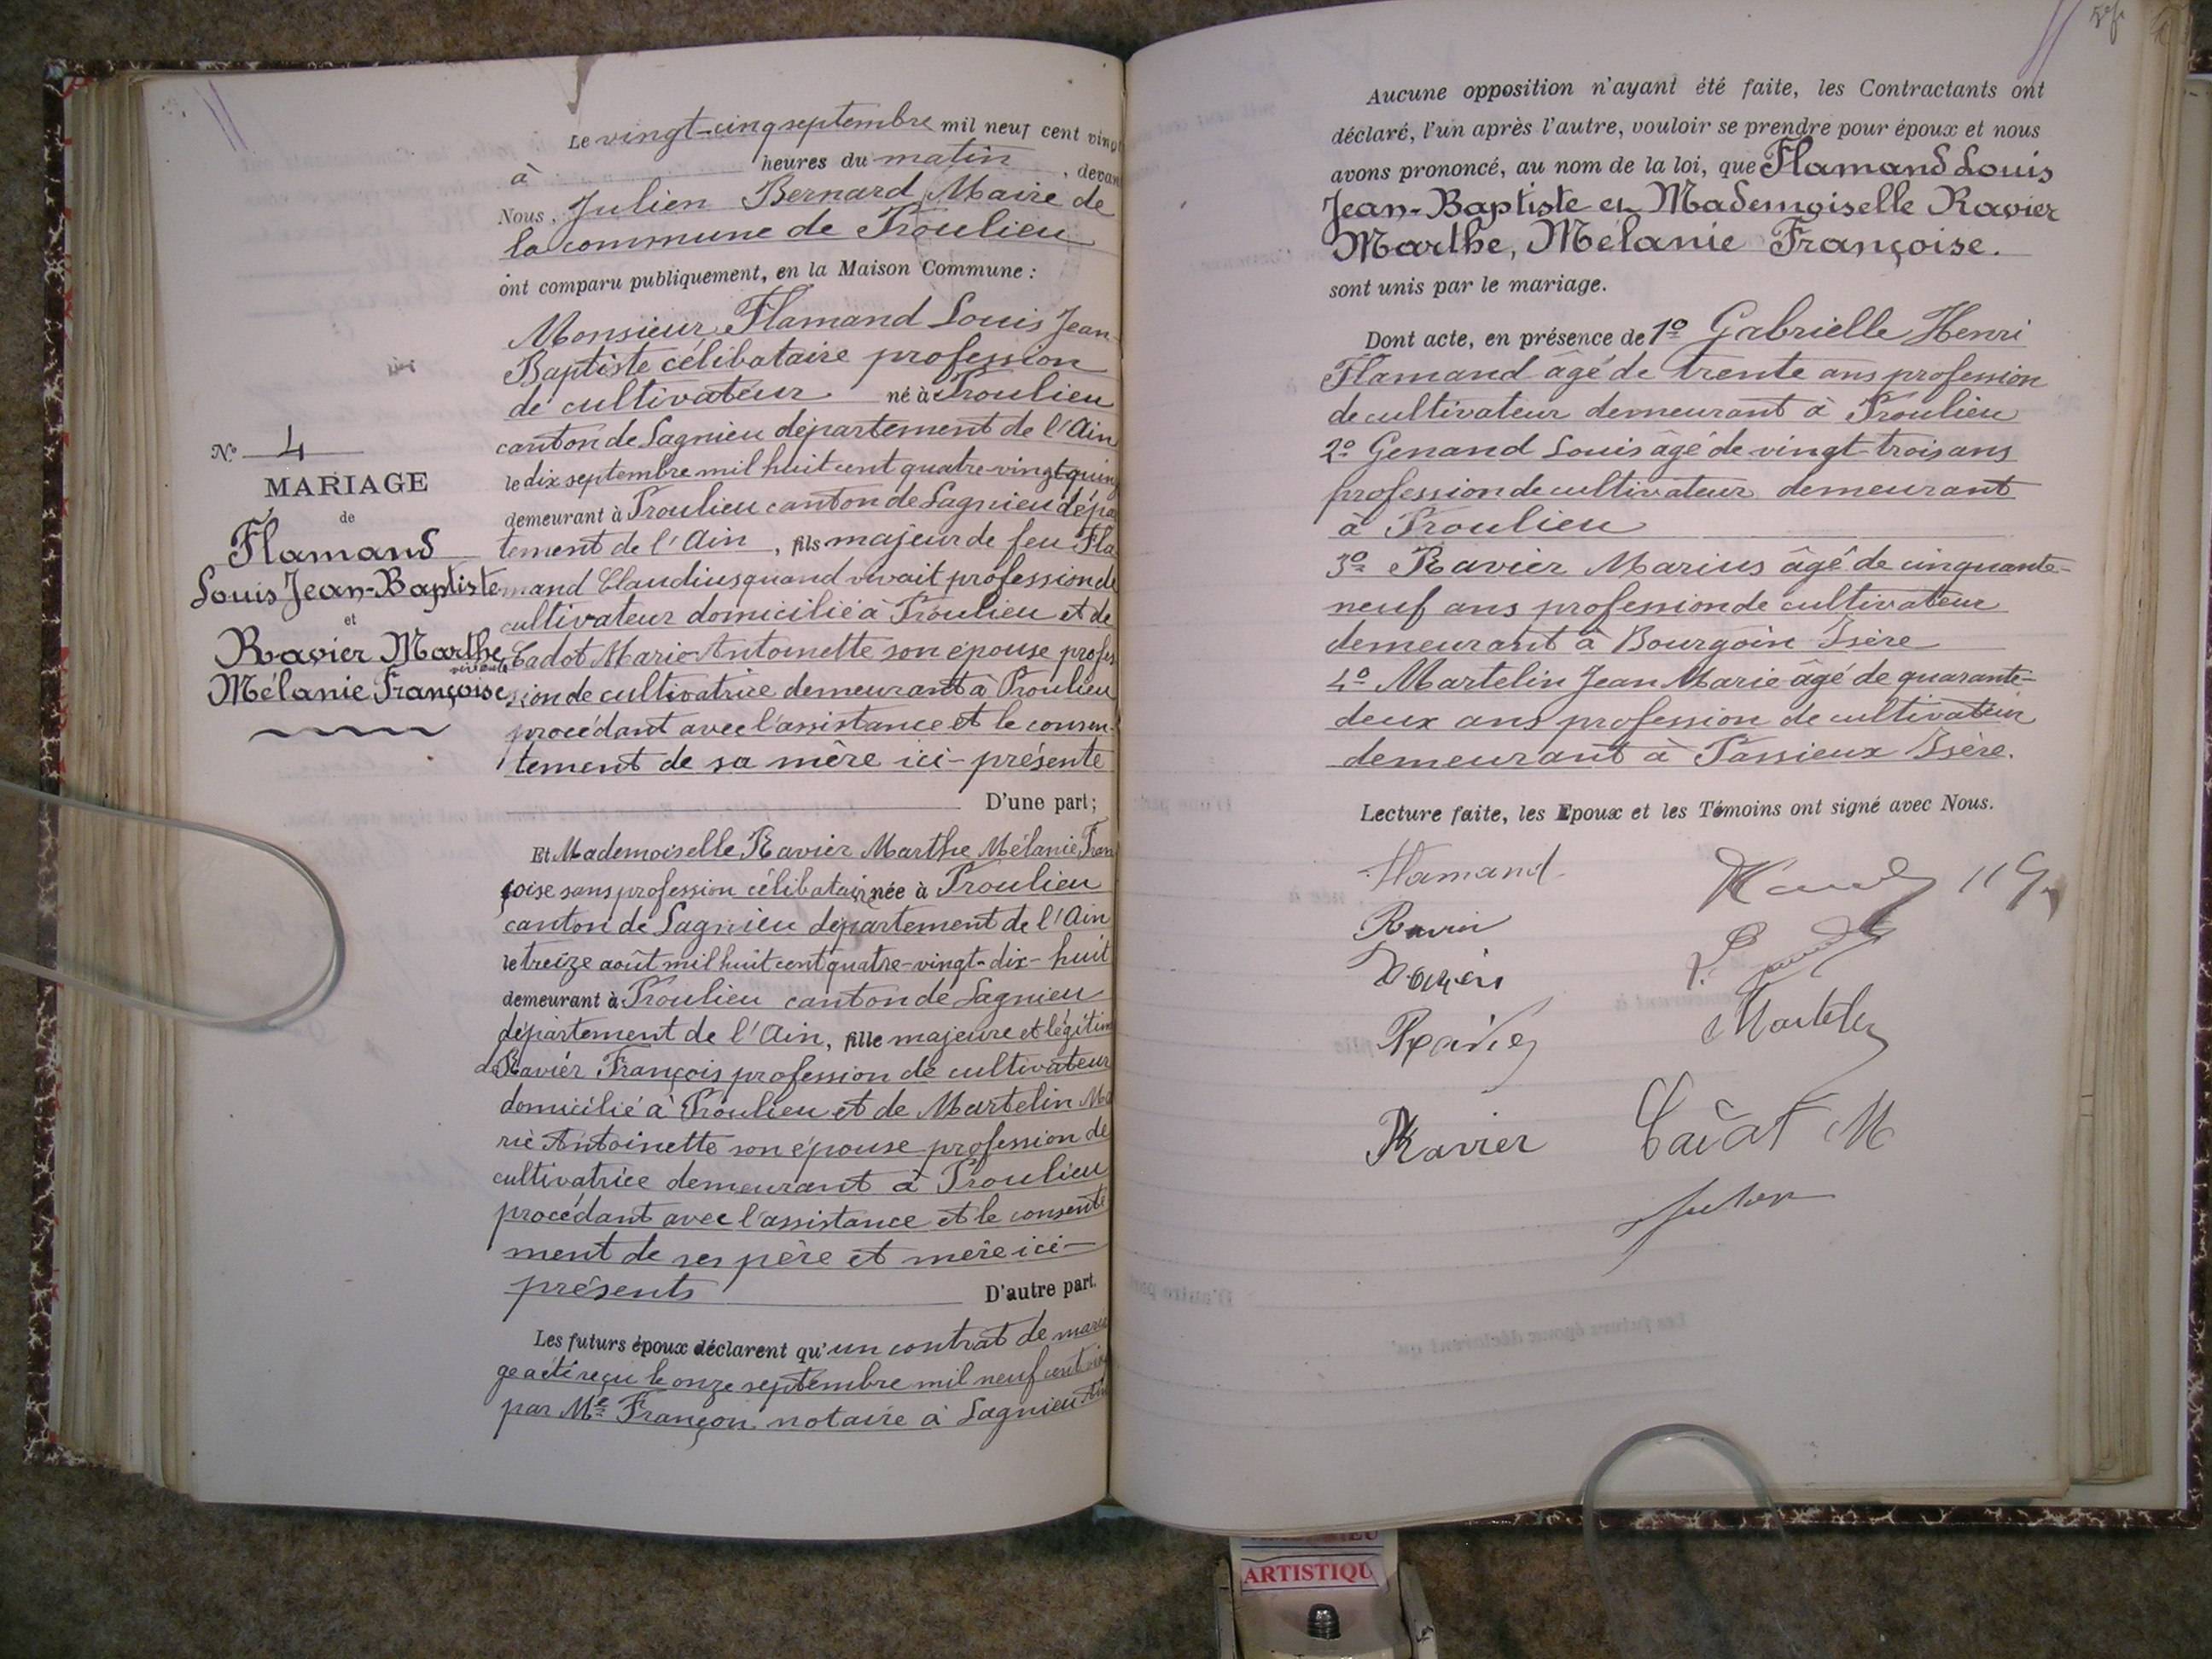 Le vingt-cinq septembre mil neuf cent vingt
à heures du matin, devan
Nous, Julien Bernard Maire de
la commune de Proulieu
ont comparu publiquement, en la Maison Commune :
Monsieur Flamand Louis Jean-
Baptiste célibataire profession
de cultivateur né à Proulieu
canton de Lagnieu département de l'Ain
le dix septembre mil huit cent quatre-vingt quinz
demeurant à Proulieu canton de Lagnieu dépar
tement de l'Ain, fils majeur de feu Fla
mand Claudius quand vivait profession de
cultivateur domicilié à Proulieu et de
Cadot Marie Antoinette son épouse profes
sion de cultivatrice demeurant à Proulieu
procédant avec l'assistance et le consen-
tement de sa mère ici-présente
D'une part;
Et Mademoiselle Ravier Marthe Mélanie Fran
çoise sans profession célibataire née à Proulieu
canton de Lagnieu département de l'Ain
le treize août mil huit cent quatre-vingt-dix-huit
demeurant à Proulieu canton de Lagnieu
département de l'Ain, fille majeure et légitim
de Ravier François profession de cultivateur
domicilié à Proulieu et de Martelin Ma
rie Antoinette son épouse profession de
cultivatrice demeurant à Proulieu
procédant avec l'assistance et le consente
ment de ses père et mère ici-
présents D'autre part.
Les futurs époux déclarent qu'un contrat de maria
ge a été reçu le onze septembre mil neuf cent vin
par Me Françon notaire à Lagnieu Ain
N° 4
MARIAGE
de
Flamand
Louis Jean-Baptiste
et
Ravier Marthe
Mélanie Françoise
Aucune opposition n'ayant été faite, les Contractants ont
déclaré, l'un après l'autre, vouloir se prendre pour époux et nous
avons prononcé, au nom de la loi, que Flamand Louis
Jean-Baptiste et Mademoiselle Ravier
Marthe, Mélanie Françoise.
sont unis par le mariage.
Dont acte, en présence de 1° Gabrielle Henri
Flamand âgé de trente ans profession
de cultivateur demeurant à Proulieu
2° Genand Louis âgé de vingt-trois ans
profession de cultivateur demeurant
à Proulieu
3° Ravier Marius âgé de cinquante-
neuf ans profession de cultivateur
demeurant à Bourgoin Isère
4° Martelin Jean Marie âgé de quarante-
deux ans profession de cultivateur
demeurant à Passieux Isère.
Lecture faite, les Epoux et les Témoins ont signé avec Nous.
Flamand
Ravier
Ravier
Martelin
Ravier
Julien
ARTISTIQU